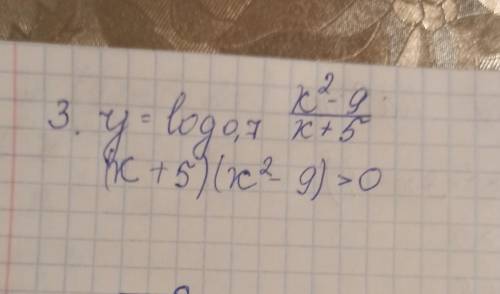 3. y = log₀,₇ (x² - 9)/(x + 5)
(x + 5)(x² - 9) > 0